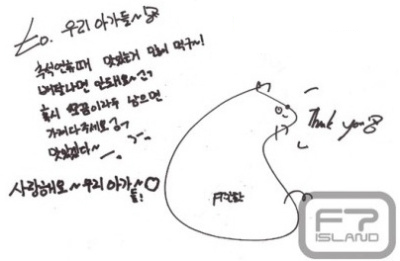 To. 우리 아가들~
추석연휴때 맛있는거 많이 먹구~!
배탈나면 안돼요~
혹시 음식이 남으면
가져다주세요
맛있겠다~
사랑해요~우리 아가들!
Thank you
FT
FT
ISLAND